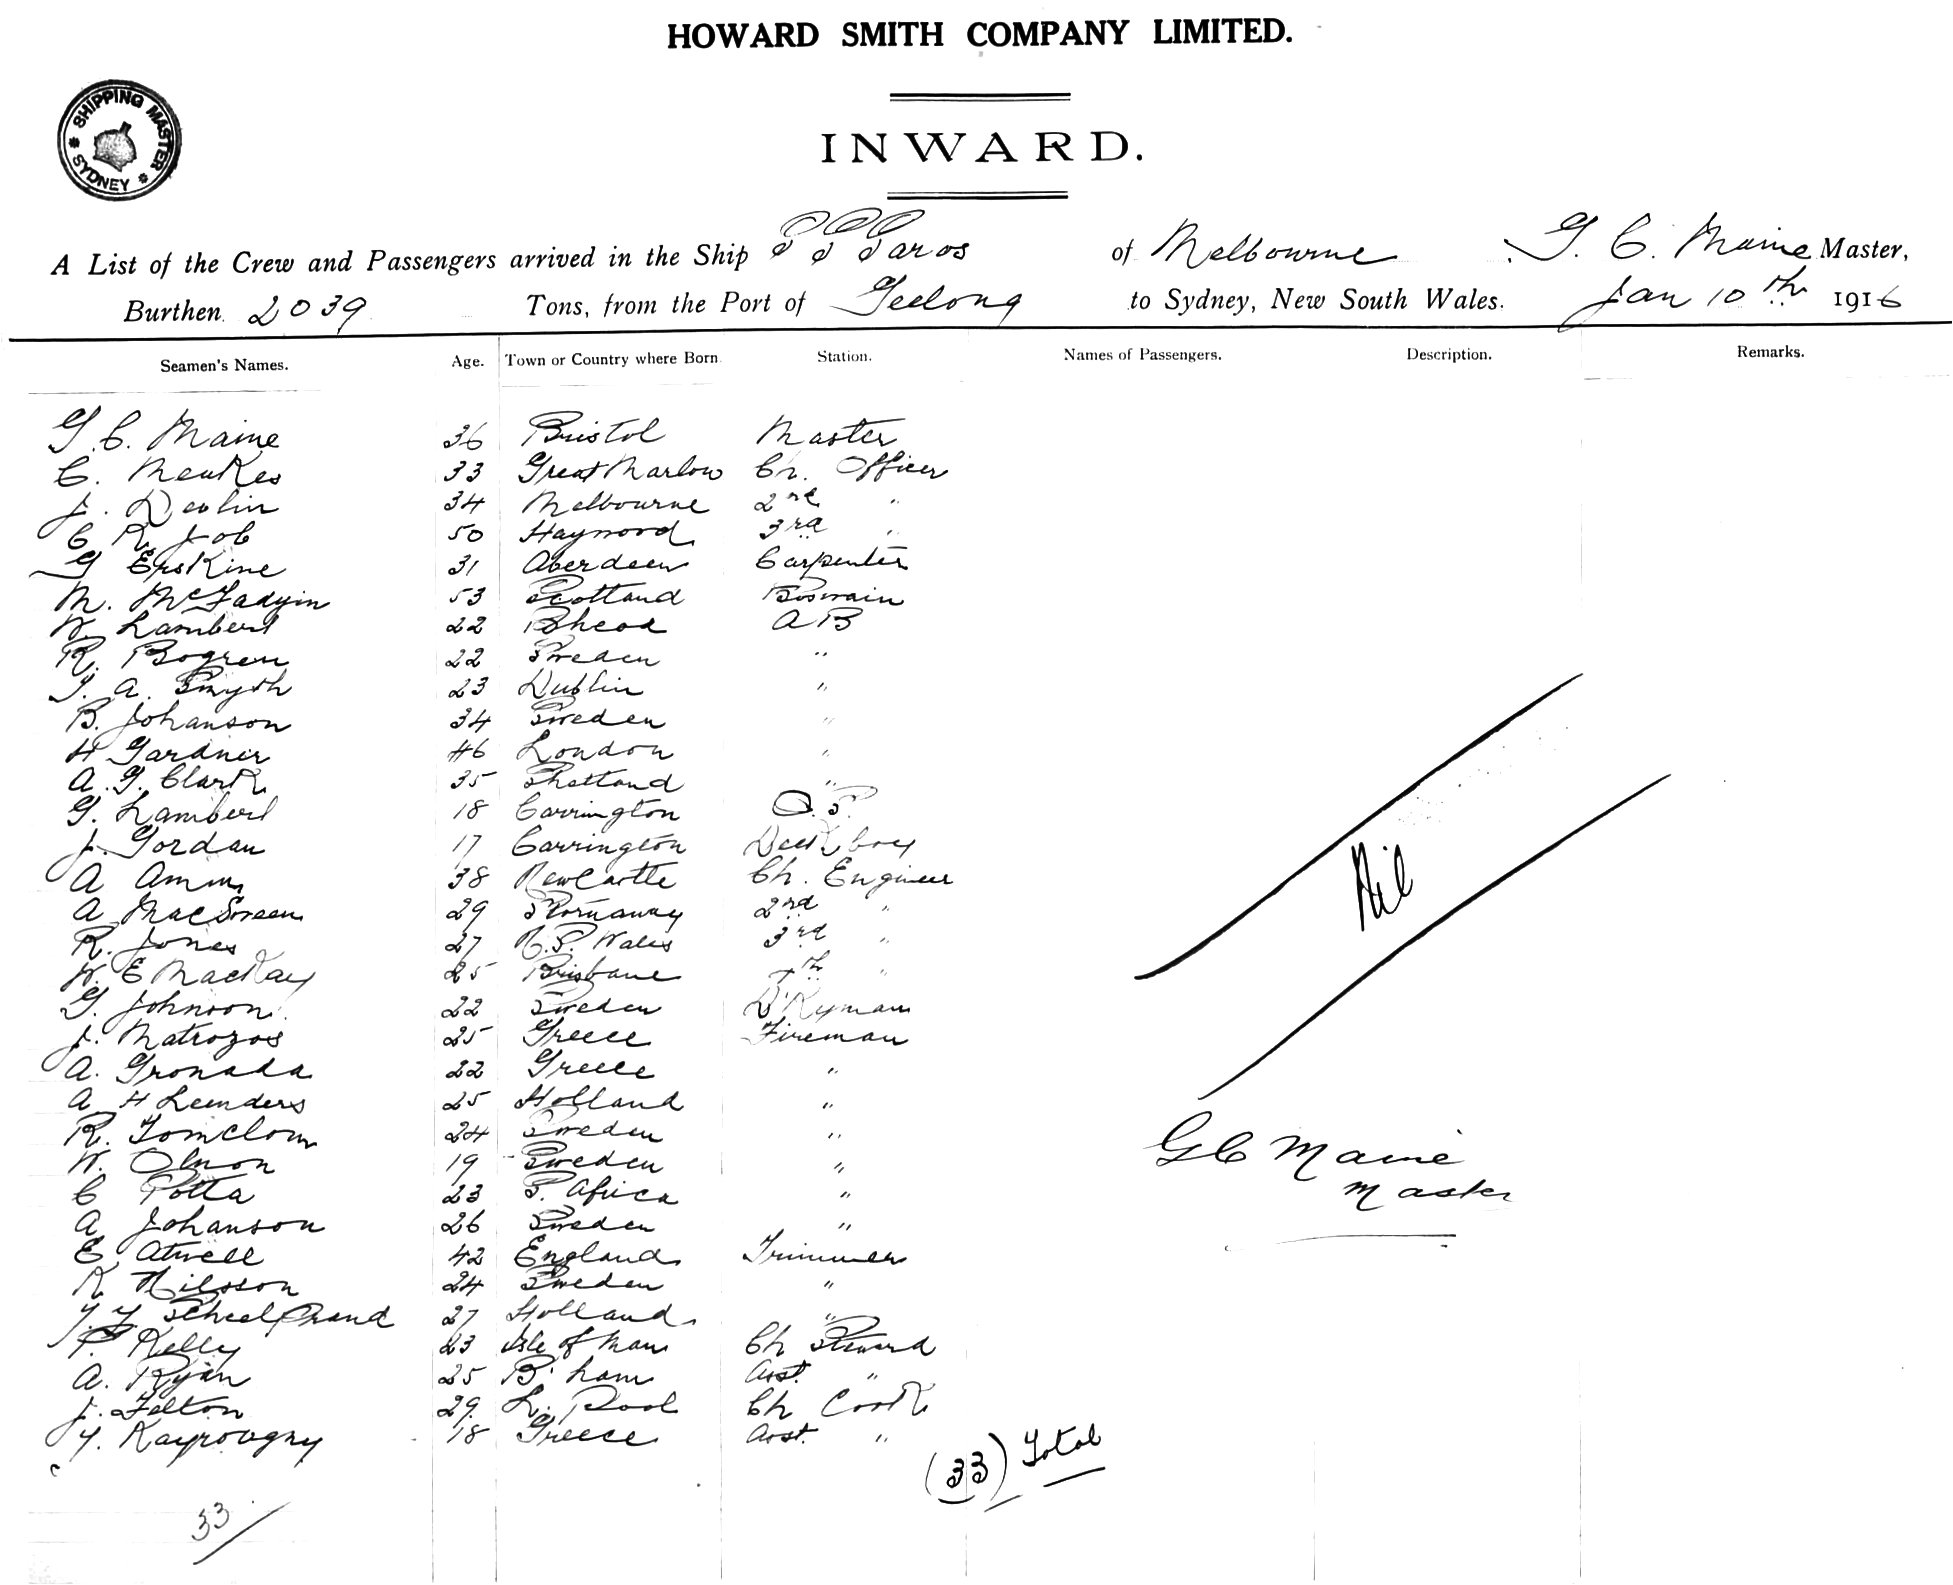 HOWARD SMITH COMPANY LIMITED.
SHIPPING MASTER SYDNEY
INWARD.
A List of the Crew and Passengers arrived in the Ship SS Saros of Melbourne G. C. Maine Master,
Burthen 2039 Tons, from the Port of Geelong to Sydney, New South Wales. Jan 10th 1916
Seamen's Names. Age. Town or Country where Born Station. Names of Passengers. Description. Remarks.
G. C. Maine 36 Bristol Master
C. Meakes 33 Great Marlow Ch. Officer
J. Devlin 34 Melbourne 2nd "
C R Job 50 Haywood 3rd "
G Erskine 31 Aberdeen Carpenter
M. McFadyin 53 Scotland Boswain
W. Lambert 22 B'head A B
R. Bogren 22 Sweden "
J. A. Smyth 23 Dublin "
B. Johanson 34 Sweden "
H Gardner 46 London "
A. G. Clark 35 Shetland "
G. Lambert 18 Carrington O.S.
J. Gordan 17 Carrington Deck boy
A 38 Newcastle Ch. Engineer
A 29 Stornaway 2nd "
R. Jones 27 N.S. Wales 3rd "
W. E MacKay 25 Brisbane 4th "
G. Johnson 22 Sweden D'Kyman
J. Matrozos 25 Greece Fireman
A. Gronada 22 Greece "
A H Leenders 25 Holland "
R. 24 Sweden "
W. Olsson 19 Sweden "
C Potta 23 S. Africa "
A Johanson 26 Sweden "
E Atwell 42 England Trimmer
K Nilsson 24 Sweden "
27 Holland "
P. Kelly 23 Isle of Man Ch Steward
A. Ryan 25 B'ham Asst. "
J. Felton 29 L. Pool Ch Cook
Y. 18 Greece Asst. "
Nil
G C Maine
Master
(33) Total
33